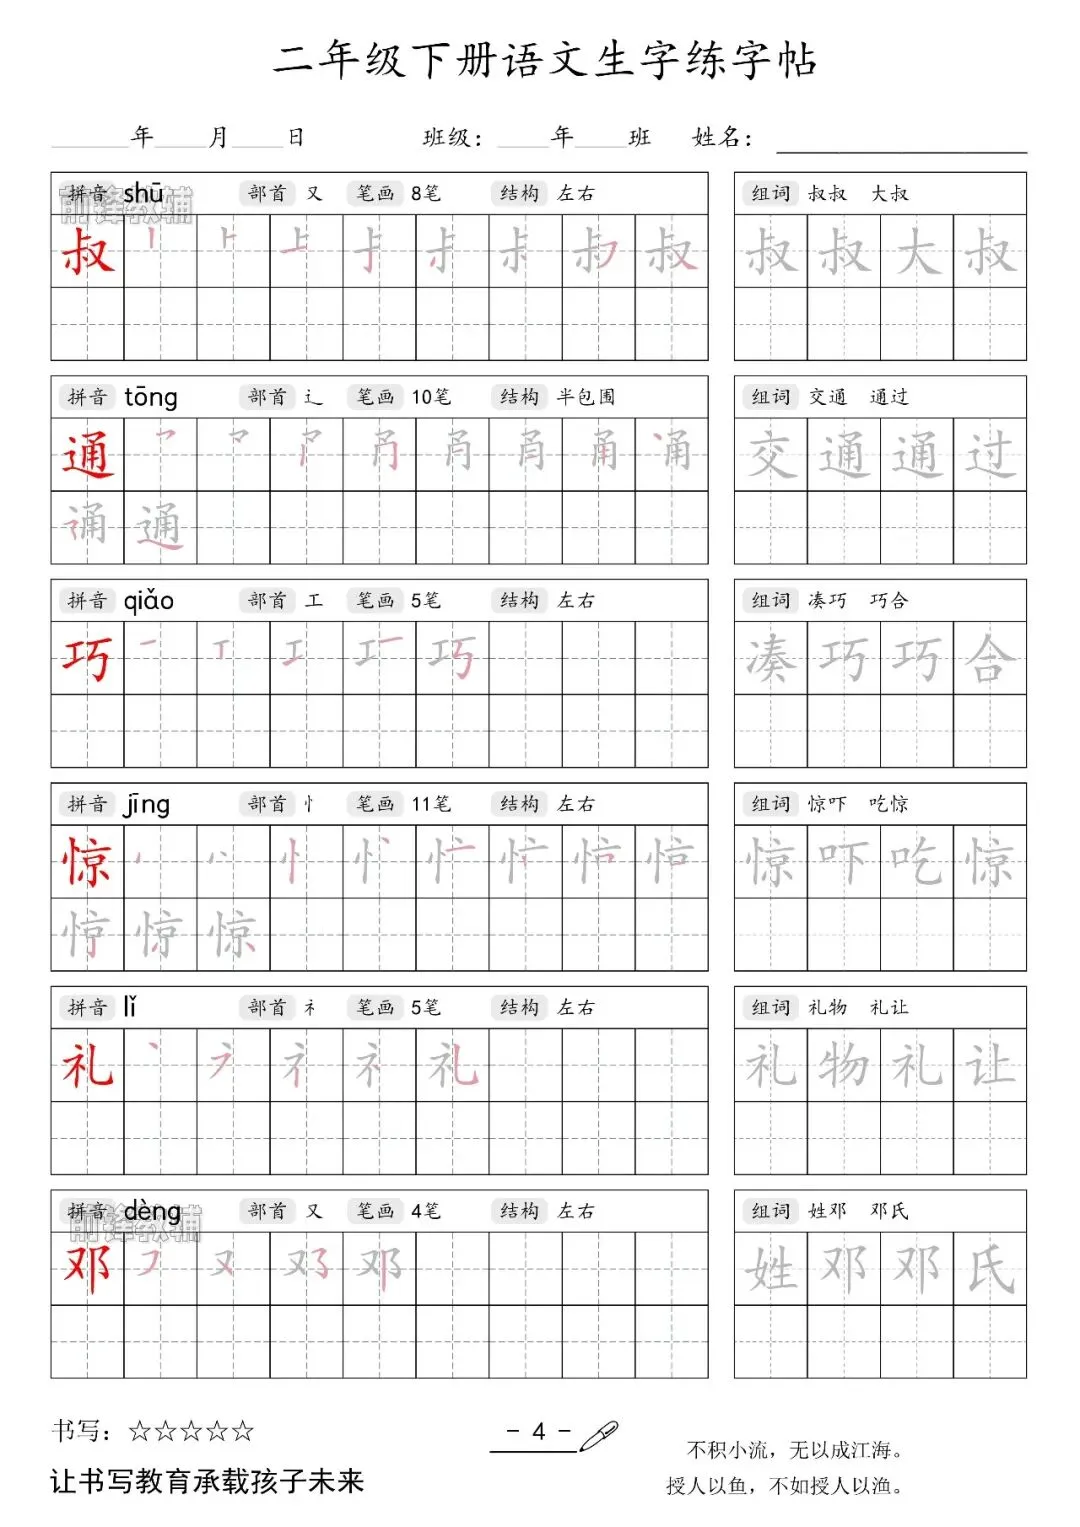 二年级下册语文生字练字帖
年 月 日 班级： 年 班 姓名：
拼音 shū 部首 又 笔画 8笔 结构 左右 组词 叔叔 大叔
前锋教辅
叔 叔 叔叔大叔
拼音 tōng 部首 辶 笔画 10笔 结构 半包围 组词 交通 通过
通 交通通过
通
拼音 qiǎo 部首 工 笔画 5笔 结构 左右 组词 凑巧 巧合
巧 巧 凑巧巧合
拼音 jīng 部首 忄 笔画 11笔 结构 左右 组词 惊吓 吃惊
惊 惊吓吃惊
惊
拼音 lǐ 部首 礻 笔画 5笔 结构 左右 组词 礼物 礼让
礼 礼 礼物礼让
拼音 dèng 部首 又 笔画 4笔 结构 左右 组词 姓邓 邓氏
前锋教辅
邓 邓 姓邓邓氏
书写：☆☆☆☆☆
- 4 -
不积小流，无以成江海。
让书写教育承载孩子未来
授人以鱼，不如授人以渔。